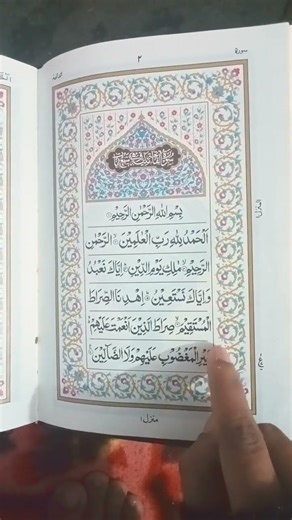 ٢
سورة
بِسْمِ اللهِ الرَّحْمٰنِ الرَّحِيْمِ
اَلْحَمْدُ لِلّٰهِ رَبِّ الْعٰلَمِيْنَ الرَّحْمٰنِ
الرَّحِيْمِ مٰلِكِ يَوْمِ الدِّيْنِ اِيَّاكَ نَعْبُدُ
وَاِيَّاكَ نَسْتَعِيْنُ اِهْدِنَا الصِّرَاطَ
الْمُسْتَقِيْمَ صِرَاطَ الَّذِيْنَ اَنْعَمْتَ عَلَيْهِمْ
الْمَغْضُوْبِ عَلَيْهِمْ وَلَا الضَّآلِّيْنَ
منزل ١